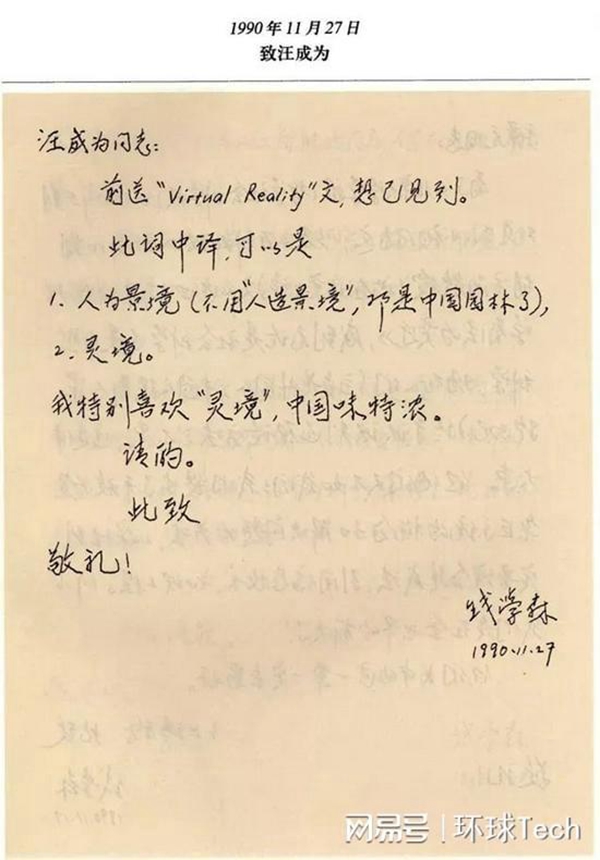 1990年11月27日
致汪成为
汪成为同志:
前送“Virtual Reality”文,想已见到。
此词中译,可以是
1. 人为景境(不用“人造景境”,那是中国园林了),
2. 灵境。
我特别喜欢“灵境”,中国味特浓。
请酌。
此致
敬礼!
钱学森
1990.11.27
网易号 | 环球Tech